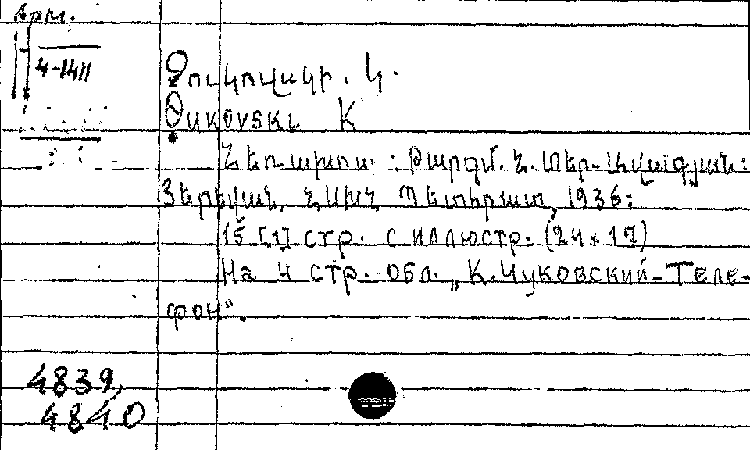 Арм.
4-1411
Չուկովսկի. Կ.
Čukovski K
Հեռախոս: Թարգմ. Հ. Տեր-Ավագյան:
Յերեվան, ՀՍԽՀ Պետհրատ, 1936:
15 [1] стр. с иллюстр. (24×17)
На 4 стр. обл. „К. Чуковский-Теле-
фон".
4839,
4840